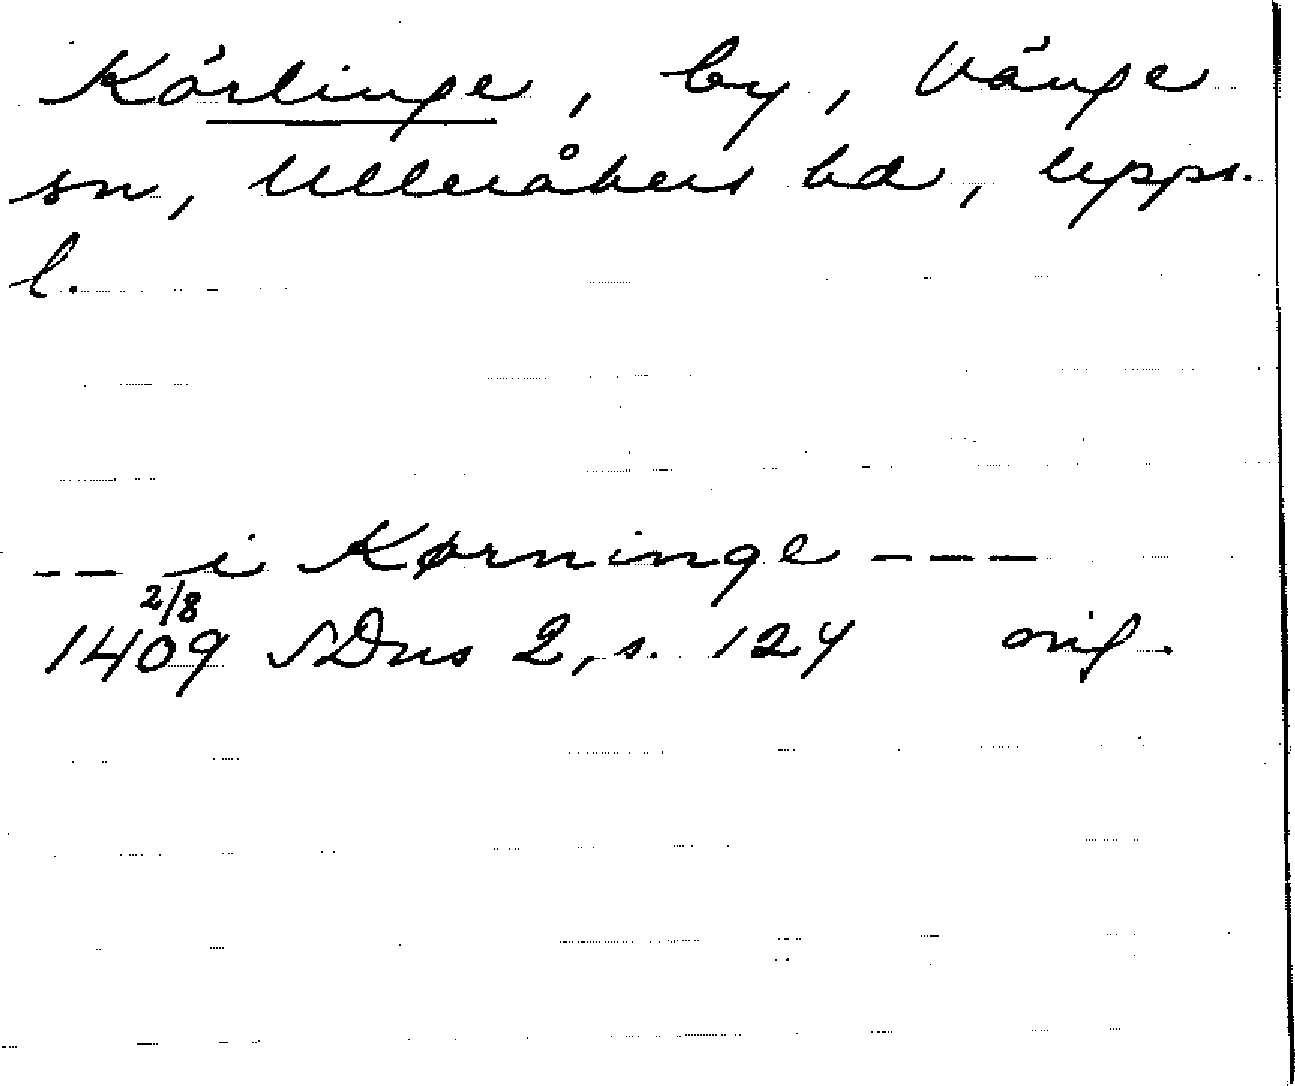 Körlinge, by, Vänge
sn, Ulleråkers hd, Upps.
l.
-- i Kørninge ---
2/8
1409 SDns 2, s. 124 orig.